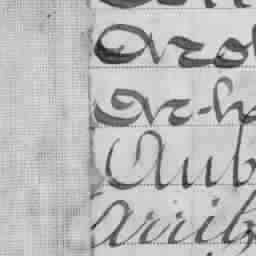 Aro
Ar-h
Aub
arrib